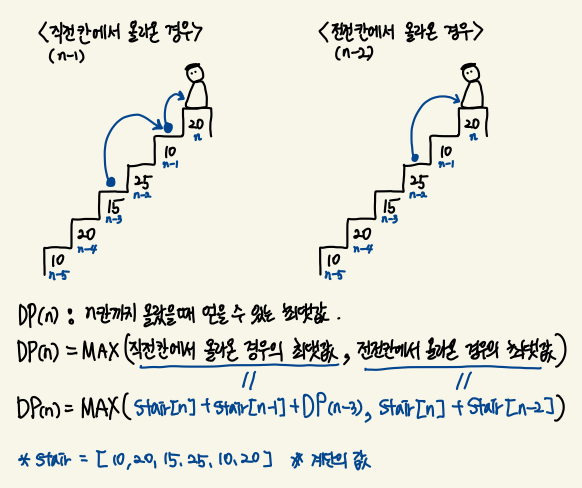 <직전칸에서 올라온 경우>
(n-1)
20
n
10
n-1
25
n-2
15
n-3
20
n-4
10
n-5
<전전칸에서 올라온 경우>
(n-2)
20
n
10
n-1
25
n-2
15
n-3
20
n-4
10
n-5
DP(n) : n칸까지 올랐을때 얻을 수 있는 최댓값.
DP(n) = MAX(직전칸에서 올라온 경우의 최댓값, 전전칸에서 올라온 경우의 최댓값)
// //
DP(n) = MAX(stair[n]+stair[n-1]+DP(n-3), stair[n]+stair[n-2])
* stair = [10,20,15,25,10,20] * 계단의 값